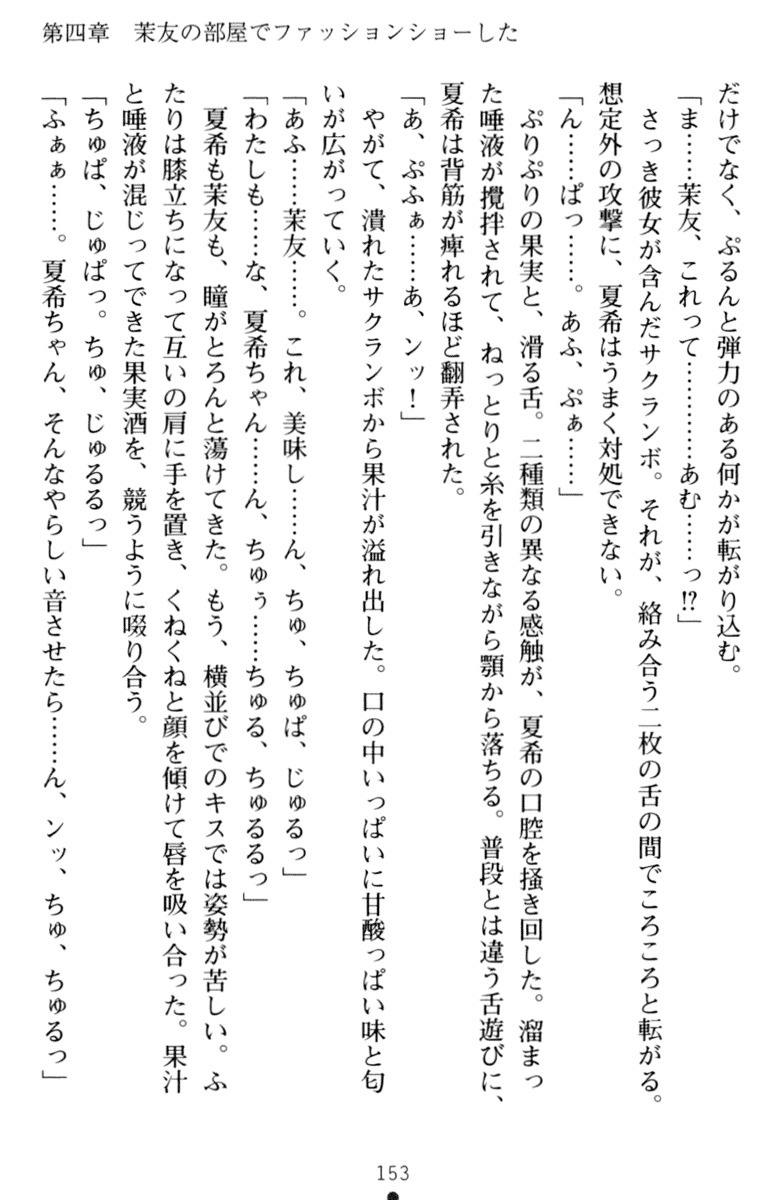 第四章　茉友の部屋でファッションショーした
だけでなく、ぷるんと弾力のある何かが転がり込む。
「ま……茉友、これって…………あむ……っ!?」
さっき彼女が含んだサクランボ。それが、絡み合う二枚の舌の間でころころと転がる。
想定外の攻撃に、夏希はうまく対処できない。
「ん……ぱっ……。あふ、ぷぁ……」
ぷりぷりの果実と、滑る舌。二種類の異なる感触が、夏希の口腔を掻き回した。溜まっ
た唾液が攪拌されて、ねっとりと糸を引きながら顎から落ちる。普段とは違う舌遊びに、
夏希は背筋が痺れるほど翻弄された。
「あ、ぷふぁ……あ、ンッ！」
やがて、潰れたサクランボから果汁が溢れ出した。口の中いっぱいに甘酸っぱい味と匂
いが広がっていく。
「あふ……茉友……。これ、美味し……ん、ちゅ、ちゅぱ、じゅるっ」
「わたしも……な、夏希ちゃん……ん、ちゅぅ……ちゅる、ちゅるるっ」
夏希も茉友も、瞳がとろんと蕩けてきた。もう、横並びでのキスでは姿勢が苦しい。ふ
たりは膝立ちになって互いの肩に手を置き、くねくねと顔を傾けて唇を吸い合った。果汁
と唾液が混じってできた果実酒を、競うように啜り合う。
「ちゅぱ、じゅぱっ。ちゅ、じゅるるっ」
「ふぁぁ……。夏希ちゃん、そんなやらしい音させたら……ん、ンッ、ちゅ、ちゅるっ」
153